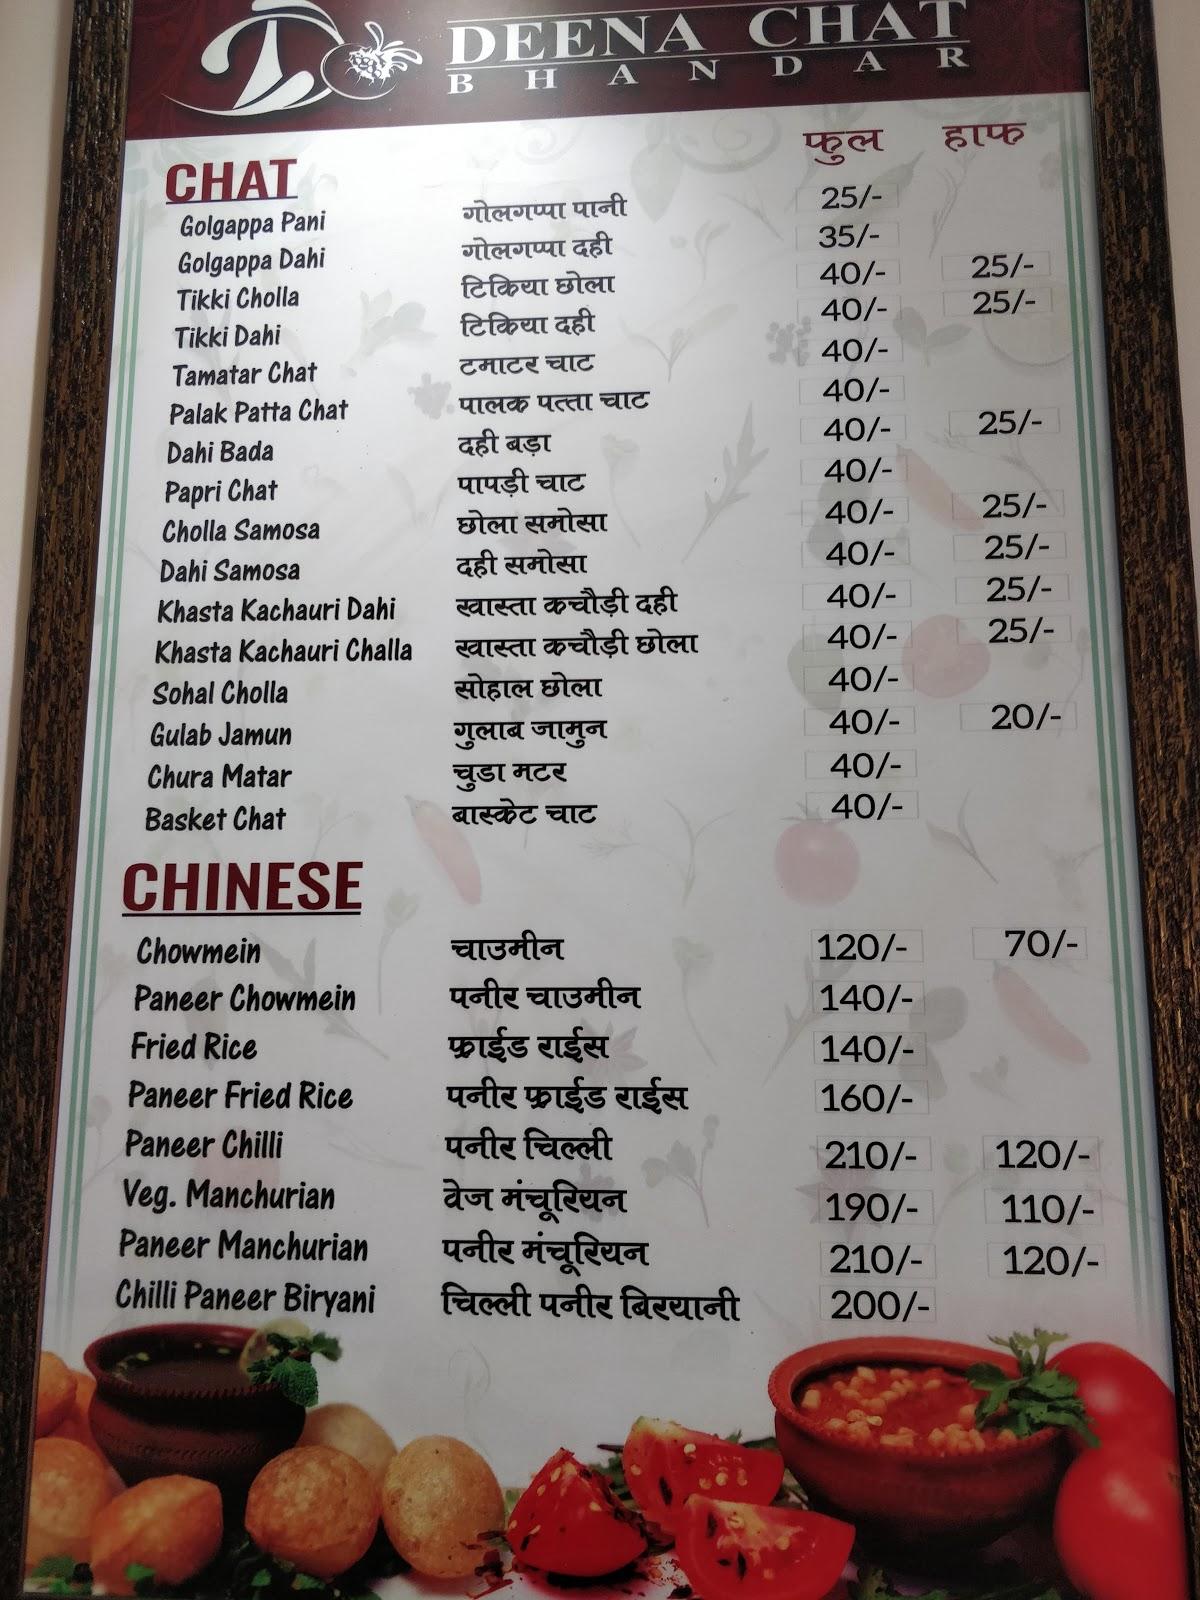 DEENA CHAT
BHANDAR
फुल हाफ
CHAT
Golgappa Pani गोलगप्पा पानी 25/-
Golgappa Dahi गोलगप्पा दही 35/-
Tikki Cholla टिकिया छोला 40/- 25/-
Tikki Dahi टिकिया दही 40/- 25/-
Tamatar Chat टमाटर चाट 40/-
Palak Patta Chat पालक पत्ता चाट 40/-
Dahi Bada दही बड़ा 40/- 25/-
Papri Chat पापड़ी चाट 40/-
Cholla Samosa छोला समोसा 40/- 25/-
Dahi Samosa दही समोसा 40/- 25/-
Khasta Kachauri Dahi खास्ता कचौड़ी दही 40/- 25/-
Khasta Kachauri Challa खास्ता कचौड़ी छोला 40/- 25/-
Sohal Cholla सोहाल छोला 40/-
Gulab Jamun गुलाब जामुन 40/- 20/-
Chura Matar चुडा मटर 40/-
Basket Chat बास्केट चाट 40/-
CHINESE
Chowmein चाउमीन 120/- 70/-
Paneer Chowmein पनीर चाउमीन 140/-
Fried Rice फ्राईड राईस 140/-
Paneer Fried Rice पनीर फ्राईड राईस 160/-
Paneer Chilli पनीर चिल्ली 210/- 120/-
Veg. Manchurian वेज मंचूरियन 190/- 110/-
Paneer Manchurian पनीर मंचूरियन 210/- 120/-
Chilli Paneer Biryani चिल्ली पनीर बिरयानी 200/-